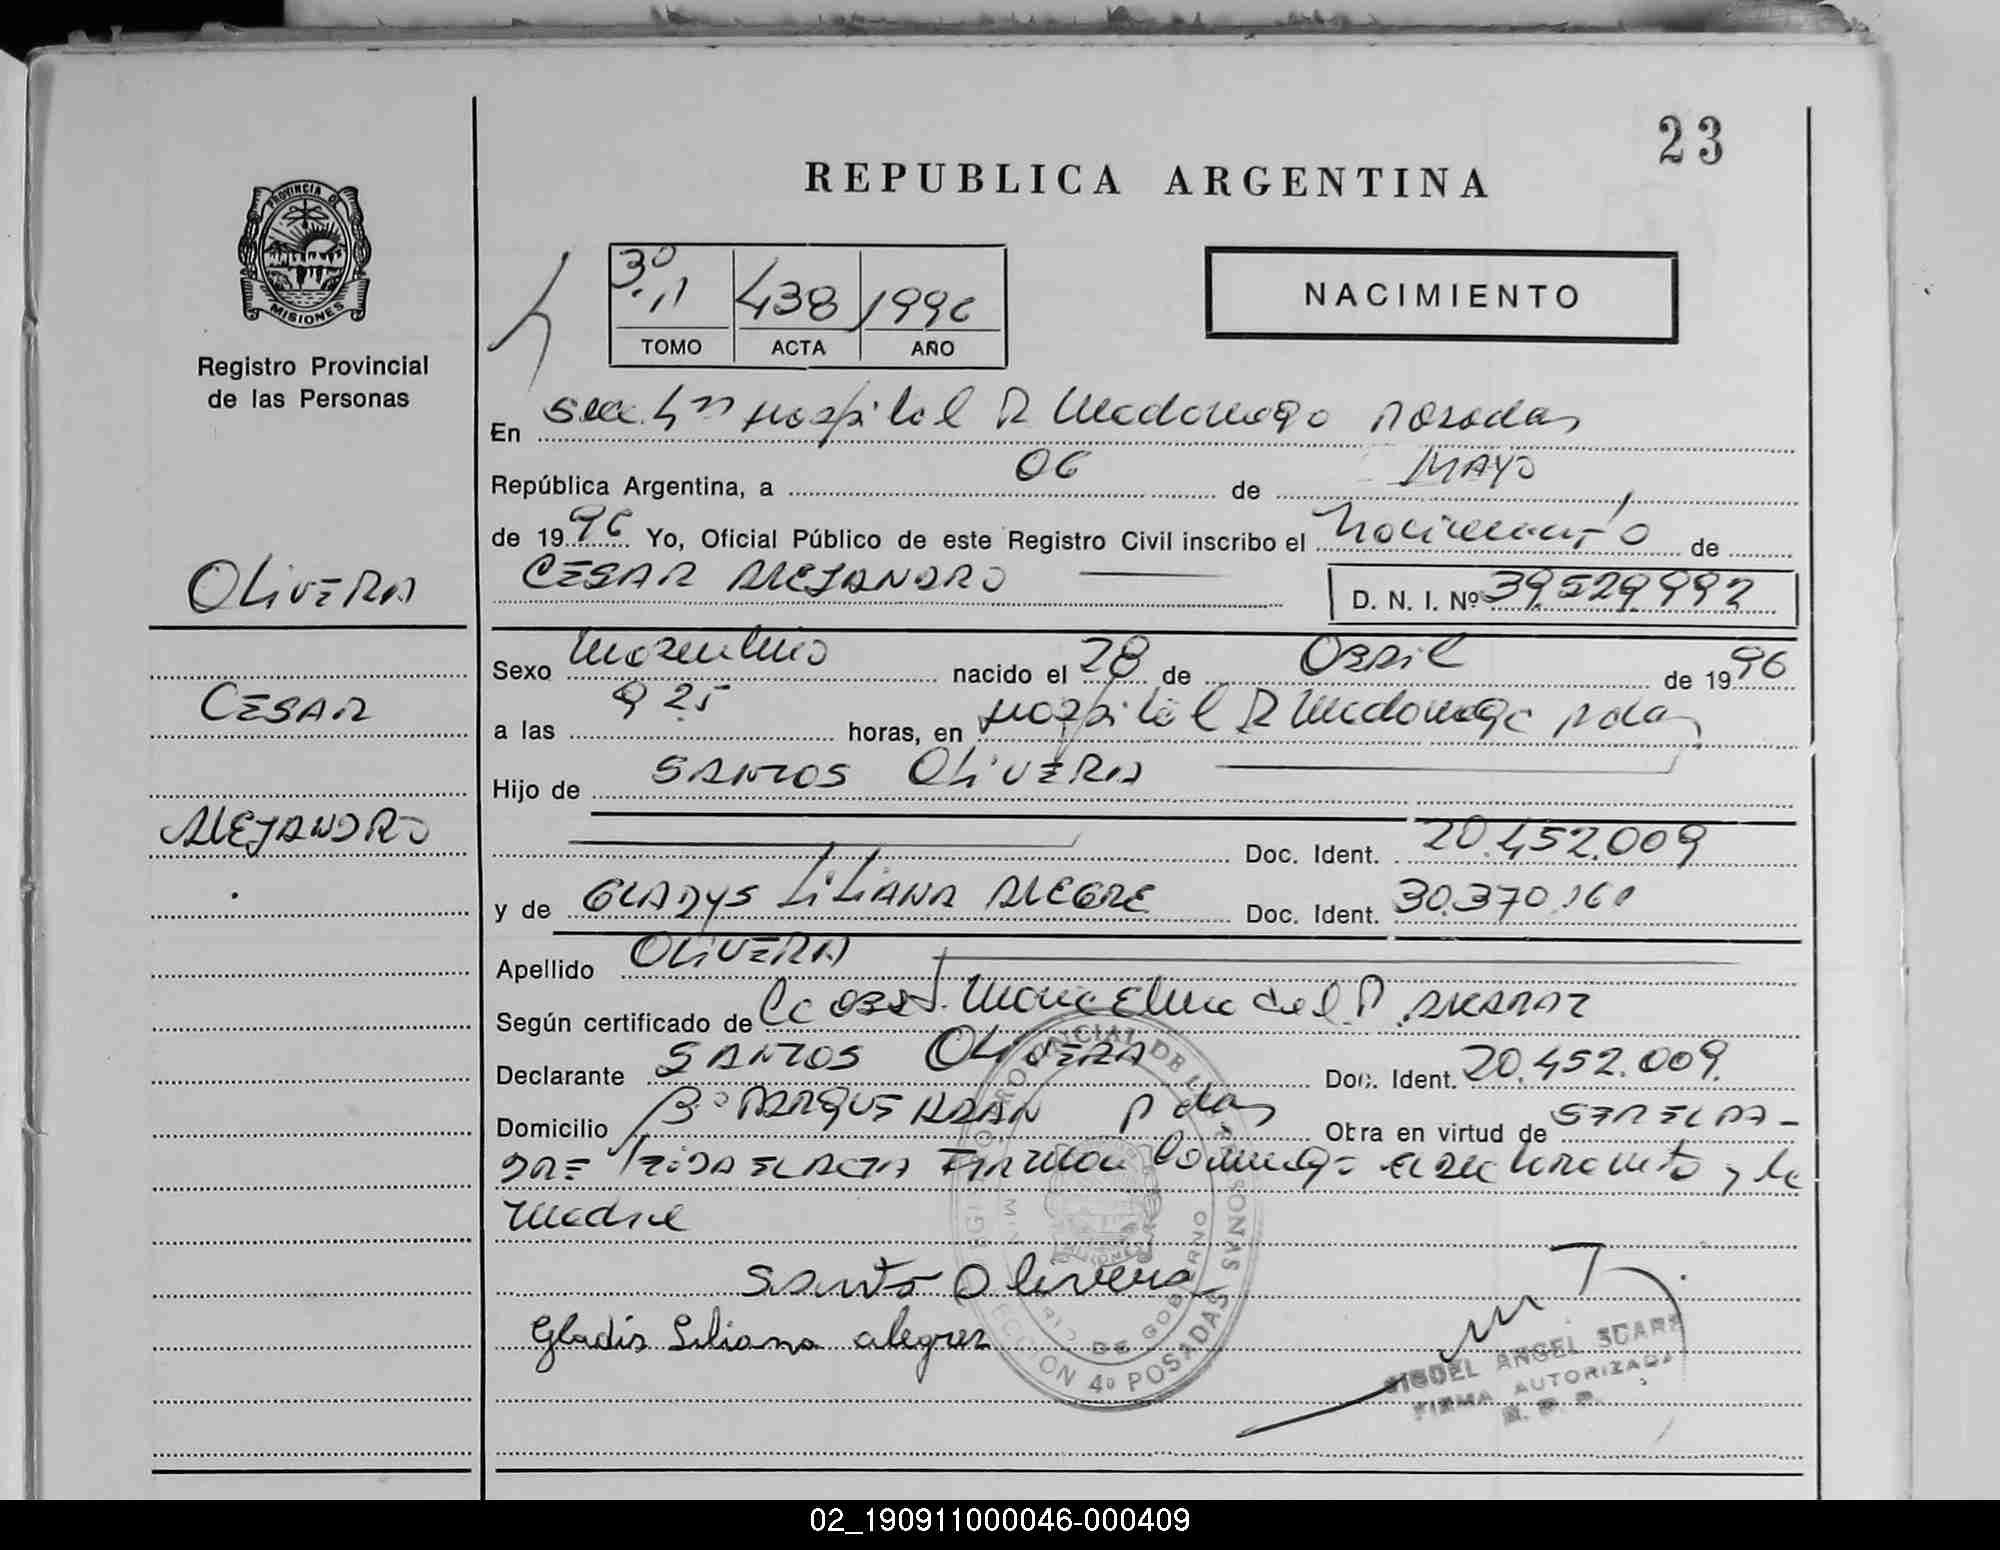 23
REPUBLICA ARGENTINA
PROVINCIA DE
MISIONES
Registro Provincial
de las Personas
3º 438 1996
TOMO ACTA AÑO
NACIMIENTO
En Secc. 4ta Hospital R Madariaga Posadas
República Argentina, a 06 de MAYO
de 1996 Yo, Oficial Público de este Registro Civil inscribo el nacimiento de
OLIVERA
CESAR ALEJANDRO D. N. I. Nº 39.529.992
Sexo masculino nacido el 28 de Abril de 1996
CESAR
a las 9 25 horas, en Hospital R Madariaga Pdas
Hijo de SANTOS OLIVERA
ALEJANDRO
Doc. Ident. 20.452.009
y de GLADYS LILIANA ALEGRE Doc. Ident. 30.370.161
Apellido OLIVERA
Según certificado de Obst. del
Declarante SANTOS OLIVERA Doc. Ident. 20.452.009
Domicilio Bº PARQUE ADAN Pdas Obra en virtud de SER EL PA-
DRE LEIDA EL ACTA FIRMAN Conmigo el declarante y la
Madre
Santo Olivera
Gladis Liliana alegrez
REGISTRO PROVINCIAL DE LAS PERSONAS
MINISTERIO DE GOBIERNO
MISIONES
SECCION 4º POSADAS
MIGUEL ANGEL
FIRMA AUTORIZADA
02_190911000046-000409